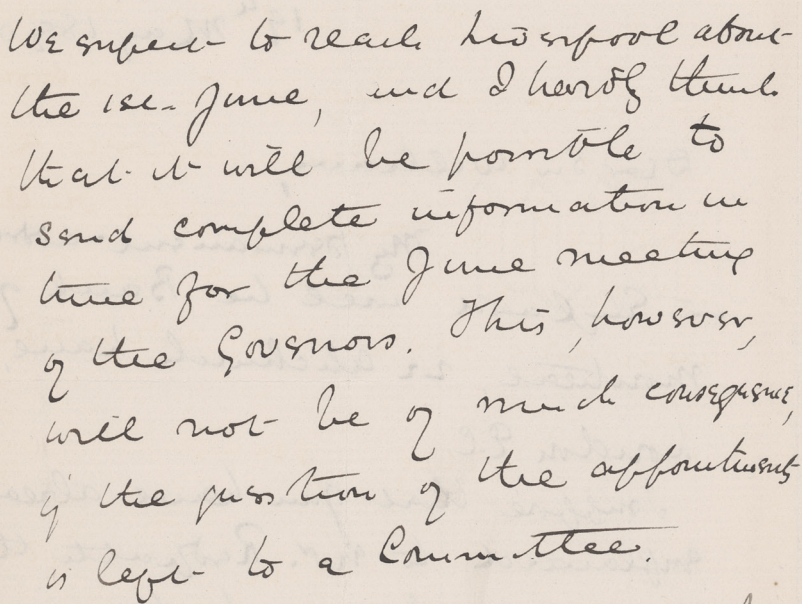 We expect to reach Liverpool about
the 1st. June, and I hardly think
that it will be possible to
send complete information in
time for the June meeting
of the Governors. This, however,
will not be of much consequence,
if the question of the appointments
is left to a Committee.